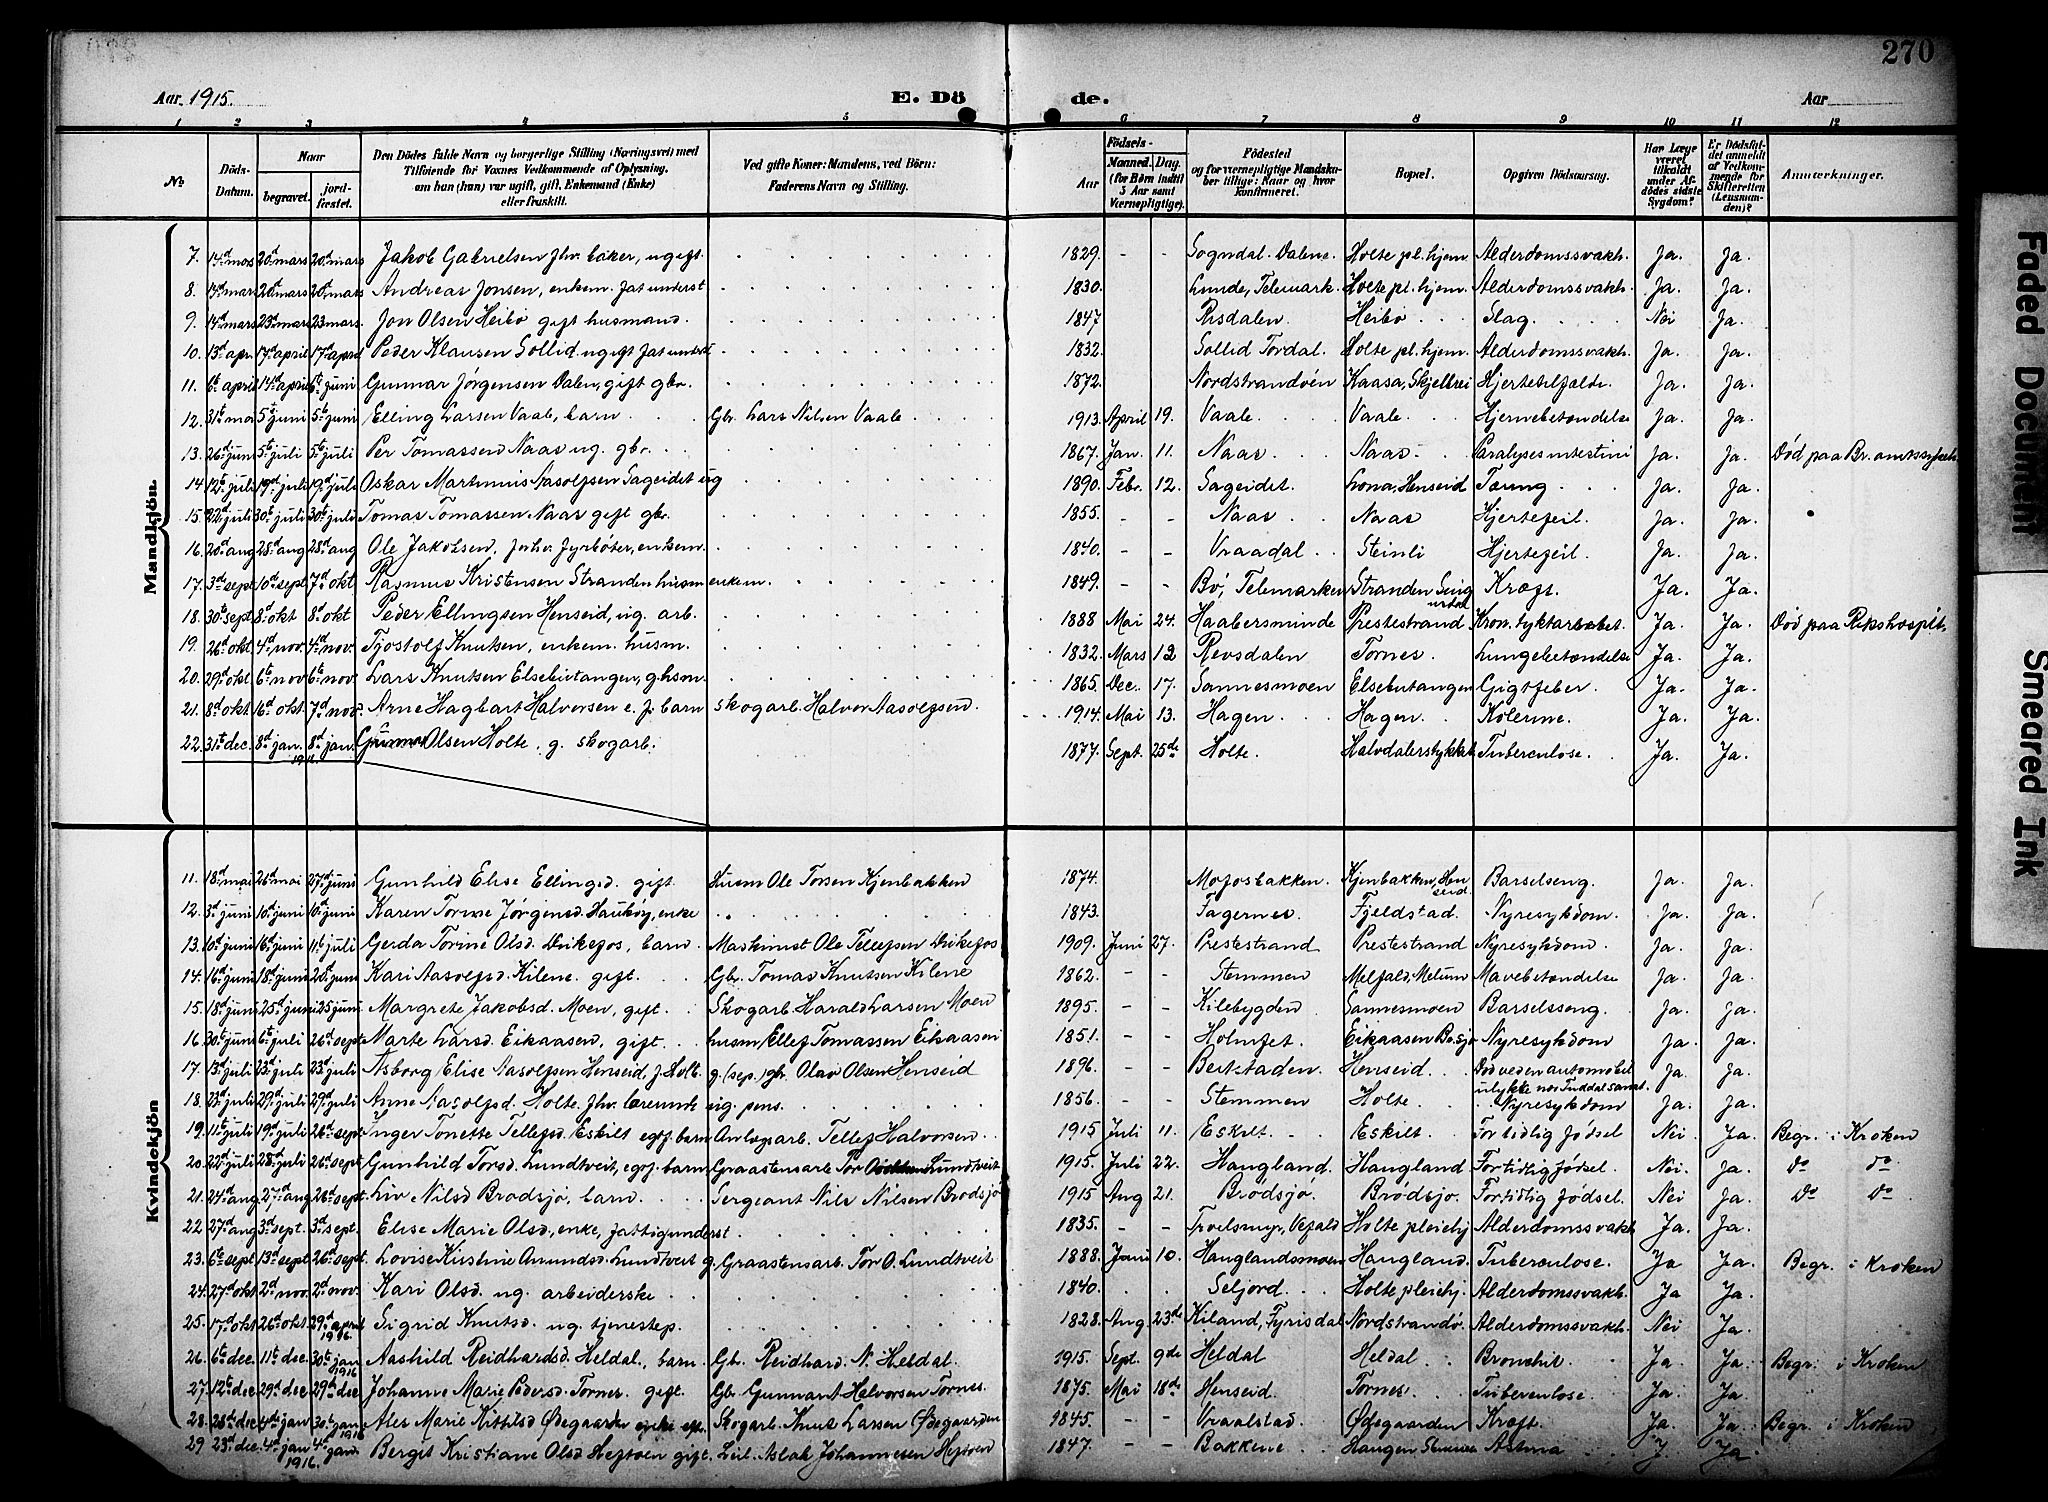 270
Aar 1915.
E. Dö de.
Aar
1 2 3 4 5 6 7 8 9 10 11 12
No
Döds-Datum.
Naar begravet. jordfæstet.
Den Dödes fulde Navn og borgerlige Stilling (Næringsvei) med Tilföiende för Voxnes Vedkommende af Oplysning, om han (hun) var ugift, gift, Enkemand (Enke) eller fraskilt.
Ved gifte Koner: Mandens, ved Börn: Faderens Navn og Stilling.
Aar
Födsels- Maaned. Dag. (for Börn indtil 5 Aar samt Værnepligtige).
Födested og for værnepligtige Mandskaber tillige: Naar og hvor konfirmeret.
Bopæl.
Opgiven Dödsaarsag.
Har Læge været tilkaldt under Afdödes sidste Sygdom?
Er Dödsfaldet anmeldt af Vedkommende for Skifteretten (Lensmanden)?
Anmærkninger.
Mandkjön.
7. 14d mars 20d mars 20d mars Jakob Gabrielsen fhv. baker, ugift 1829. - - Sogndal. Dalene Holte pl. hjem. Alderdomssvakh. Ja. Ja.
8. 14d mars 20d mars 20d mars Andreas Jonsen, enkem. fat. underst 1830. Lunde, Telemark. Holte pl. hjem. Alderdomssvakh. Ja. Ja.
9. 14d mars 23d mars 23 mars. Jon Olsen Heibø gift husmand. 1847 Risdalen. Heibø Slag. Nei Ja.
10. 13d apr. 17d april 17d april Peder Klausen Sollid ugift fat. underst 1832. Sollid Tordal. Holte pl. hjem. Alderdomssvakh. Ja. Ja.
11. 6t april 14d april 6t juni Gunnar Jørgensen Dalen, gift gbr. 1872. Nordstrandöen Kaasa, Skjelbrei Hjertetilfælde. Ja. Ja.
12. 31t mai 5t juni 5t juni Elling Larsen Vaale, barn Gbr. Lars Nilsen Vaale 1913. April 19. Vaale Vaale. Hjernebetændelse Ja. Ja.
13. 26d juni 5t juli 5t juli Per Tomassen Naas ug. gbr. 1867. Jan. 11. Naas Naas Paralyses intestini Ja. Ja. Død paa Br. amtssykeh.
14. 12t juli 19d juli 19d juli Oskar Martinius Aasolfsen Sageidet ug 1890. Febr. 12. Sageidet. Lona, Henseid Tæring Ja. Ja.
15. 22d juli 30t juli 30t juli Tomas Tomassen Naas gift gbr. 1855. - - Naas Naas Hjertefeil. Ja. Ja.
16. 20d aug 28d aug 28d aug Ole Jakobsen, forhv. fyrbøter, enkem. 1840. - - Vraadal Steinli Hjertefeil. Ja. Ja.
17. 3d sept 10d sept 7d okt Rasmus Kristensen Stranden husm enkem. 1849. - - Bö, Telemarken Stranden Kræft. Ja. Ja.
18. 30t sept 8d okt 8d okt Peder Ellingsen Henseid, ug. arb. 1888 Mai 24. Haabersminde Prestestrand Kron. tyktarbet. Ja. Ja. Død paa Rikshospit.
19. 26d okt 4d nov. 4d nov. Tjostolf Knutsen, enkem. husm. 1832. Mars 12 Revsdalen Tornes. Lungebetændelse Ja. Ja.
20. 29d okt 6t nov 6t nov. Lars Knutsen Elsebutangen, g. husm. 1865. Dec. 17. Sannesmoen Elsebutangen Gigtfeber. Ja. Ja.
21. 8d okt 16d okt. 7d nov. Arne Hagbart Halvorsen e. f. barn skogarb. Halvor Aasolfsen. 1914. Mai 13. Hagen. Hagen. Kolerine. Ja. Ja.
22. 31t dec. 8d jan. 1916 8d jan. Gunnar Olsen Holte, g. skogarb. 1877. Sept. 25de Holte. Halvdalerstykket Tuberculose. Ja. Ja.
Kvindekjön
11. 18d mai 26d mai 27d juni Gunhild Elise Ellingsd. gift. Husm Ole Torsen Kjenbakken 1874. Mofosbakken. Kjenbakken, Henseid. Barselseng. Ja. Ja.
12. 3d juni 10d juni 10d juni Karen Tomine Jørgensd. Haukøy, enke 1843. Fagernes. Fjeldstad. Nyresykdom. Ja. Ja.
13. 10d juni 16d juni 11t juli Gerda Torine Olsd. Drikefos, barn. Maskinist Ole Tellefsen Drikefos 1909. Juni 27. Prestestrand Prestestrand Nyresykdom. Ja. Ja.
14. 16d juni 18d juni 20d juni Kari Aasolfsd. Kilene. gift. Gbr. Tomas Knutsen Kilene 1862. - - Stemmen Melfald, Melum. Mavebetændelse Ja. Ja.
15. 18d juni 25d juni 25 juni Margrete Jakobsd. Moen, gift. Skogarb. Harald Larsen Moen 1895. - - Kilebygden Sannesmoen Barselsseng. Ja. Ja.
16. 30t juni 6t juli 26d sept Marte Larsd. Eikaasen, gift. husm Ellef Tomassen Eikaasen 1851. - - Holmfet. Eikaasen Bosjø Nyresykdom Ja. Ja.
17. 13d juli 23d juli 23d juli Asborg Elise Aasolfsen Henseid, f. Holt. g. (sep.) gbr. Olav Olsen Henseid 1896. - - Berkstaden. Henseid. Død ved en automobilulykke nær Tuddal sanat. Ja. Ja.
18. 23d juli 29d juli 29d juli Anne Aasolfsd. Holte fhv. lærerinde ug. pens. 1856. - - Stemmen Holte. Nyresykdom Ja. Ja.
19. 11t juli 19d juli 26d sept. Inger Tonette Tellefsd. Eskilt egtf. barn Anlægsarb. Tellef Halvorsen. 1915 Juli 11. Eskilt. Eskilt. For tidlig fødsel Nei Ja. Begr. i Kroken
20. 22d juli 28d juli 26d sept Gunhild Torsd. Lundtveit, egtf. barn Graastensarb Tor Lundtveit 1915. Juli 22. Haugland. Haugland For tidlig fødsel. Nei. Ja. do do
21. 24d aug 27d aug 26d sept. Liv Nilsd Brødsjø, barn. Sergeant Nils Nilsen Brødsjø 1915 Aug 21. Brødsjø. Brødsjø. For tidlig fødsel. Nei Ja. do do
22. 27d aug 3d sept. 3d sept. Elise Marie Olsd, enke, fattigunderst 1835. - - Troelsmyr, Vefald Holte pleiehj Alderdomssvakh Ja. Ja.
23. 6t sept 13d sept 26d sept. Lovise Kirstine Amundsd. Lundtveit g. Graastensarb. Tor O. Lundtveit 1888. Juni 10. Hauglandsmoen Haugland. Tuberculose. Ja Ja. Begr. i Kroken
24. 27d okt 2d nov. 2d nov. Kari Olsd. ug. arbeiderske 1840. Seljord. Holte pleiehj. Alderdomssvakh. Ja Ja.
25. 17d okt 26d okt. 29d april 1916. Sigrid Knutsd. ug. tjenestep. 1828. Aug 23de Kiland, Fyrisdal Nordstrandø. Alderdomssvakh. Nei Ja.
26. 6t dec. 11t dec. 30t jan 1916 Aashild Reidhardsd. Heldal, barn Gbr. Reidhard N. Heldal. 1915. Sept. 9de Heldal Heldal Bronchit. Ja. Ja. Begr. i Kroken
27. 12t dec 29d dec 29d dec Johanne Marie Pedersd. Tornes. gift. Gbr. Gunnar Halvorsen Tornes. 1875. Mai 18de Henseid. Tornes. Tuberculose. Ja. Ja.
28. 28d dec 4d jan 30t jan 1916 Ales Marie Kittilsd Ødegaarden Skogarb. Knut Larsen Ødegaarden 1845. - - Vraalstad. Ødegaarden Kræft. Ja. Ja. Begr. i Kroken
29 23d dec. 4d jan 1916. 4d jan. Bergit Kristiane Olsd Heftøen gift. Leil. Aslak Johannesen Heftøen 1847. - - Bakkene Haugen Astma J. Ja.
Faded Document
Smeared Ink